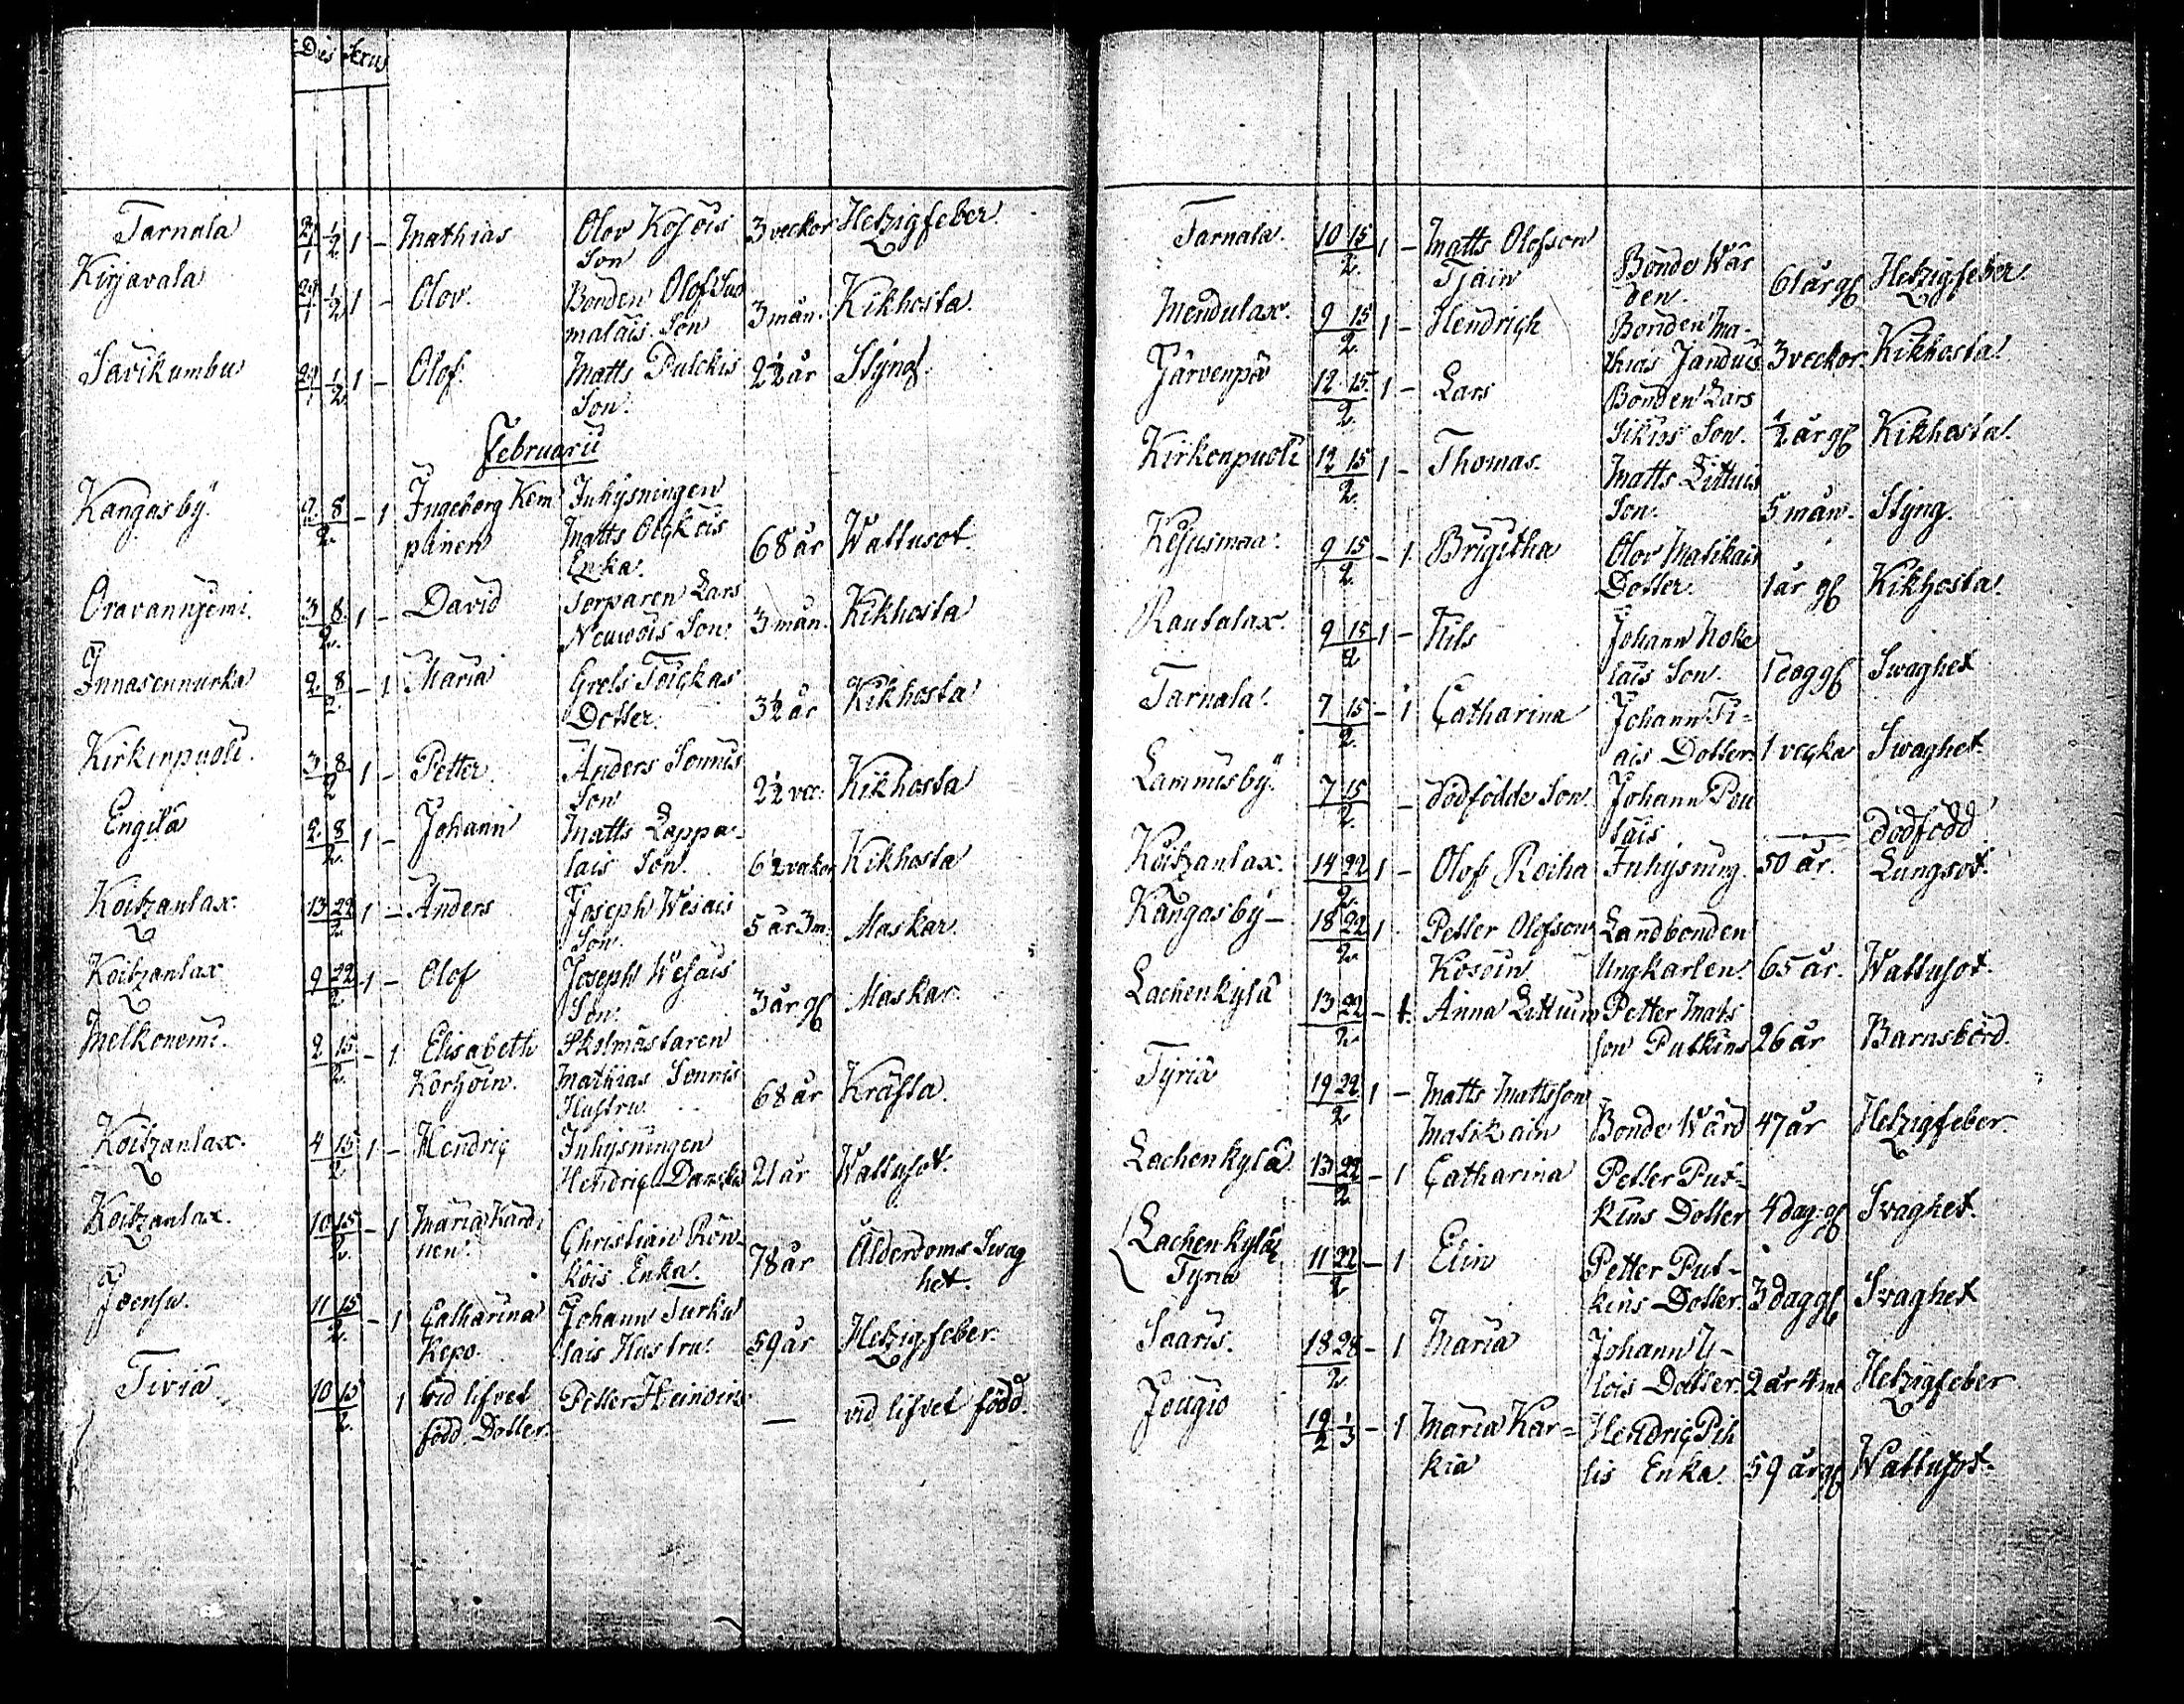 Dies Sexus
Tarnala 1/2 1 – Mathias Olov Kosois 3 veckor Hetzigfeber
Son
Kirjavala 29/1 1/2 1 – Olov. Bonden Olof
malais Son 3 mån. Kikhosta.
Savikumbu 29/1 1/2 1 – Olof. Matts Pulckis 2 1/2 år Styng.
Son.
Februarii
Kangasby 8/2 – 1 Ingeborg Kem Inhysningen
pinen Matts 68 år Wattusot.
Enka.
Oravannjemi. 3 8/2 1 – David Torparen Lars 3 mån. Kikhosta
Son.
Innasennurka 2 8/2 – 1 Maria Grels Toickas 3 1/2 år Kikhosta
Dotter.
Kirkonpuoli. 3 8/2 1 – Petter. Anders Sonnis 2 1/2 vec. Kikhosta
Son
Engilä 2 8/2 1 – Johann Matts Lappa-
lais Son. 6 1/2 veckor Kikhosta
Koitzanlax. 13 22/2 1 – Anders Joseph Wesais 5 år 3 m. Maskar.
Son.
Koitzanlax 9 22/2 1 – Olof Joseph Wesais 3 år gl Maskar.
Son.
Melkonemi. 2 15/2 – 1 Elisabeth Skolmästaren
Korhoin. Mathias Sonnis 68 år Kräfta.
Hustru
Koitzanlax. 4 15/2 1 – Hendric Inhysningen
Hendric Danska 21 år Wattusot.
Koitzanlax. 10 15/2 – 1 Maria Kardi
nen. Christian Rön-
kois Enka. 78 år Ålderdoms Swag
het.
Joensu. 11 15/2 – 1 Catharina Johann Turku
Repo. lais Hustru. 59 år Hetzigfeber.
Tiviä 10 15/2 1 vid lifvet Petter Heinoins — vid lifvet född.
född Dotter.
Tarnala. 10 15/2 1 – Matts Olofson
Tjäin Bonde Wär
den. 61 år gl Hetzigfeber.
Mendulax. 9 15/2 1 – Hendrich Bonden Ma-
thias Janduis 3 veckor. Kikhosta.
Järvenpä 12 15/2 1 – Lars Bonden Lars
Sikins Son. 1/2 år gl Kikhosta.
Kirkonpuoli 12 15/2 1 – Thomas. Matts Littuis
Son. 5 mån. Styng.
Kesusmaa. 9 15/2 – 1 Brigitha Olov Matikais
Dotter. 1 år gl Kikhosta.
Rautalax. 9 15/2 1 – Nils Johann Hoke
lais Son. 1 dag gl Swaghet
Tarnala. 7 15/2 – 1 Catharina Johann Ti-
ais Dotter. 1 vecka Swaghet.
Lammisby. 7 15/2 – dödfödde Son. Johann Pou
tais — dödfödd
Koitzanlax. 14 22/2 1 – Olof Roiha Inhysning. 50 år. Lungsot.
Kangasby – 18 22/2 1 Petter Olofson Landbonden
Kosoin Ungkarlen. 65 år. Wattusot.
Lachenkylä 13 22/2 – 1. Anna Littuin Petter Mats
son Putkins 26 år Barnsbörd.
Tyriä 19 22/2 1 – Matts Mattsson
Matikain Bonde Wärd 47 år Hetzigfeber.
Lachenkylä. 13 22/2 – 1 Catharina Petter Put-
kins Dotter 4 dag. gl Swaghet.
Lachenkylä
Tyriä 11 22/2 – 1 Elin Petter Put-
kins Dotter. 3 dag gl Swaghet
Saaris. 18 28/2 – 1 Maria Johann U-
lois Dotter. 2 år 4 m Hetzigfeber
Jougio 19/2 1/3 – 1 Maria Kar= Hendric Pih
kia lis Enka. 59 år gl Wattusot.